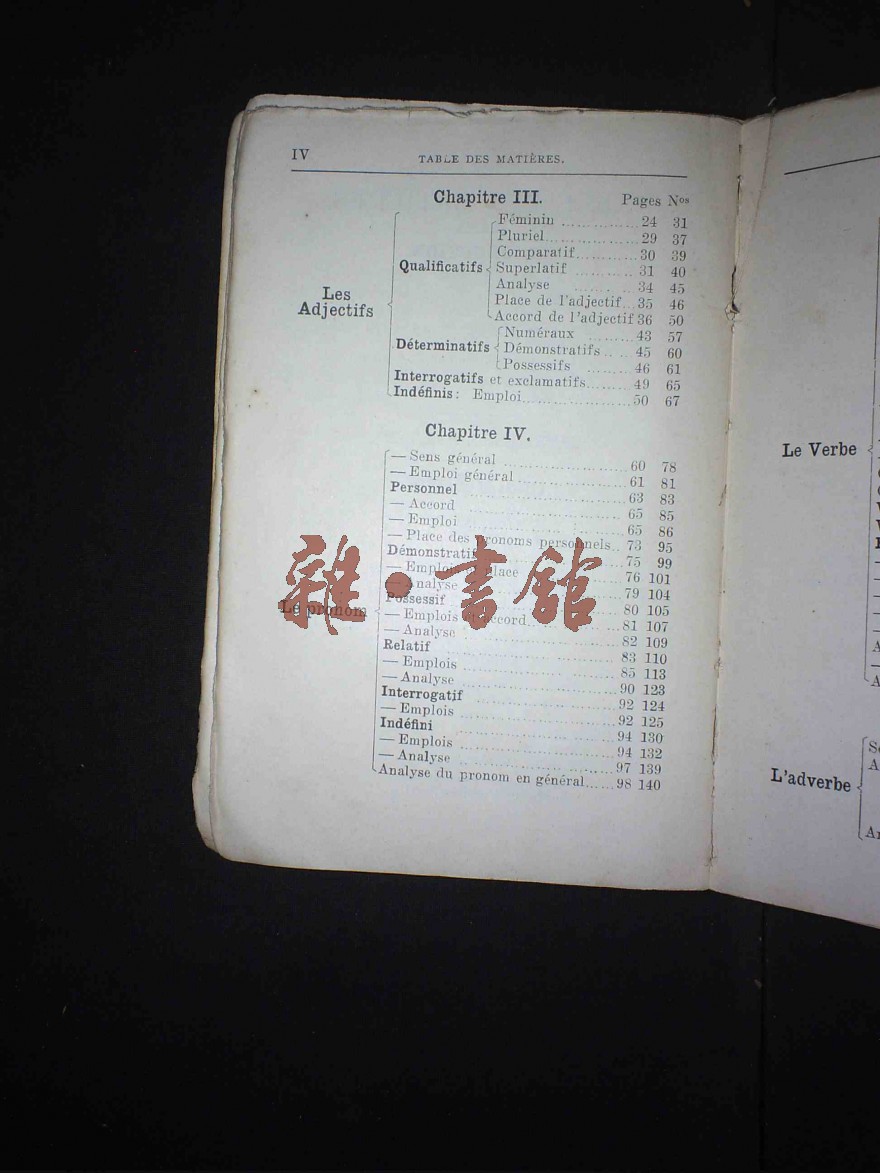 IV
TABLE DES MATIÈRES.
Chapitre III. Pages Nos
Les
Adjectifs
Qualificatifs
Féminin ........... 24 31
Pluriel.................. 29 37
Comparatif............ 30 39
Superlatif ........... 31 40
Analyse ....... .. 34 45
Place de l'adjectif... 35 46
Accord de l'adjectif 36 50
Déterminatifs
Numéraux ......... 43 57
Démonstratifs.... ... 45 60
Possessifs ........ 46 61
Interrogatifs et exclamatifs........ 49 65
Indéfinis: Emploi...................... 50 67
Chapitre IV.
Le pronom
— Sens général ..................... 60 78
— Emploi général.................... 61 81
Personnel ........................... 63 83
— Accord ........................... 65 85
— Emploi ........................... 65 86
— Place des pronoms personnels.. 73 95
Démonstratif ....................... 75 99
— Emploi place ................ 76 101
— Analyse ......................... 79 104
Possessif ........................... 80 105
— Emplois et accord................ 81 107
— Analyse ......................... 82 109
Relatif ............................. 83 110
— Emplois ......................... 85 113
— Analyse ......................... 90 123
Interrogatif ........................ 92 124
— Emplois ......................... 92 125
Indéfini ............................ 94 130
— Emplois ......................... 94 132
— Analyse ......................... 97 139
Analyse du pronom en général...... 98 140
雜·書館
Le Verbe
L'adverbe